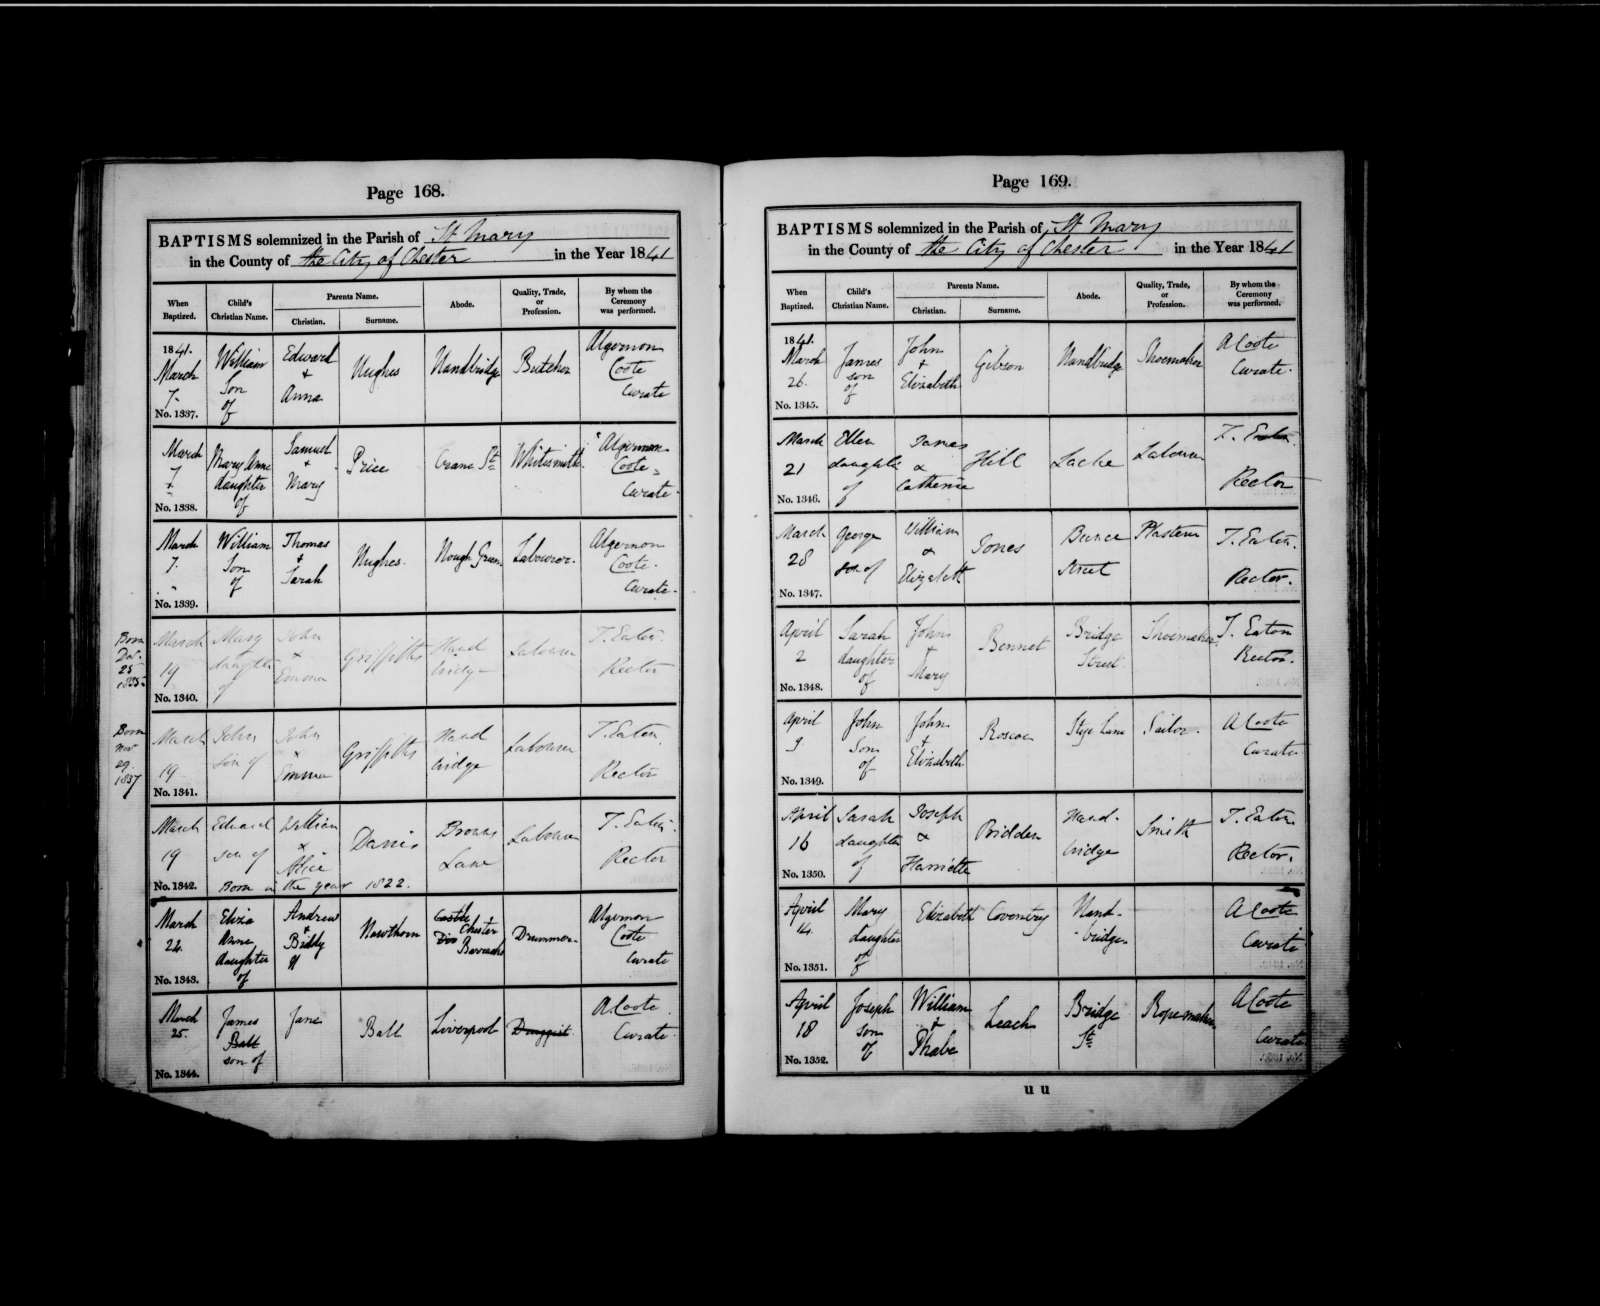 Page 168.
BAPTISMS solemnized in the Parish of St Mary
in the County of the City of Chester in the Year 1841
When Baptized. Child's Christian Name. Parents Name. Christian. Surname. Abode. Quality, Trade, or Profession. By whom the Ceremony was performed.
1841. March 7. No. 1337. William Son of Edward & Anna Hughes Handbridge Butcher Algernon Coote Curate
March 7 No. 1338. Mary Anne daughter of Samuel & Mary Price Crane St Whitesmith Algernon Coote Curate
March 7. No. 1339. William Son of Thomas & Sarah Hughes Hough Green Labourer Algernon Coote Curate
Born 25 1835 March 19 No. 1340. Mary daughter of John & Emma Griffiths Handbridge Labourer T. Eaton Rector
Born Nov 29 1837 March 19 No. 1341. John son of John & Emma Griffiths Handbridge Labourer T. Eaton Rector
March 19 No. 1342. Edward son of William & Alice Davis Browns Lane Labourer T. Eaton Rector
Born in the year 1822.
March 24 No. 1343. Eliza Anne daughter of Andrew & Biddy Hawthorn Castle Chester Barracks Drummer Algernon Coote Curate
March 25. No. 1344. James Ball son of Jane Ball Liverpool Druggist A Coote Curate
Page 169.
BAPTISMS solemnized in the Parish of St Mary
in the County of the City of Chester in the Year 1841
When Baptized. Child's Christian Name. Parents Name. Christian. Surname. Abode. Quality, Trade, or Profession. By whom the Ceremony was performed.
1841. March 26. No. 1345. James son of John & Elizabeth Gibson Handbridge Shoemaker A Coote Curate
March 21 No. 1346. Ellen daughter of James & Catherine Hill Lache Labourer T. Eaton Rector
March 28 No. 1347. George son of William & Elizabeth Jones Bunce Street Plasterer T. Eaton Rector.
April 2 No. 1348. Sarah daughter of John & Mary Bennet Bridge Street Shoemaker T. Eaton Rector.
April 9 No. 1349. John Son of John & Elizabeth Roscoe Skye Lane Sailor A Coote Curate
April 16 No. 1350. Sarah daughter of Joseph & Harriette Pridden Handbridge Smith T. Eaton Rector.
April 14 No. 1351. Mary daughter of Elizabeth Coventry Handbridge A Coote Curate
April 18 No. 1352. Joseph son of William & Phœbe Leach Bridge St Ropemaker A Coote Curate
u u